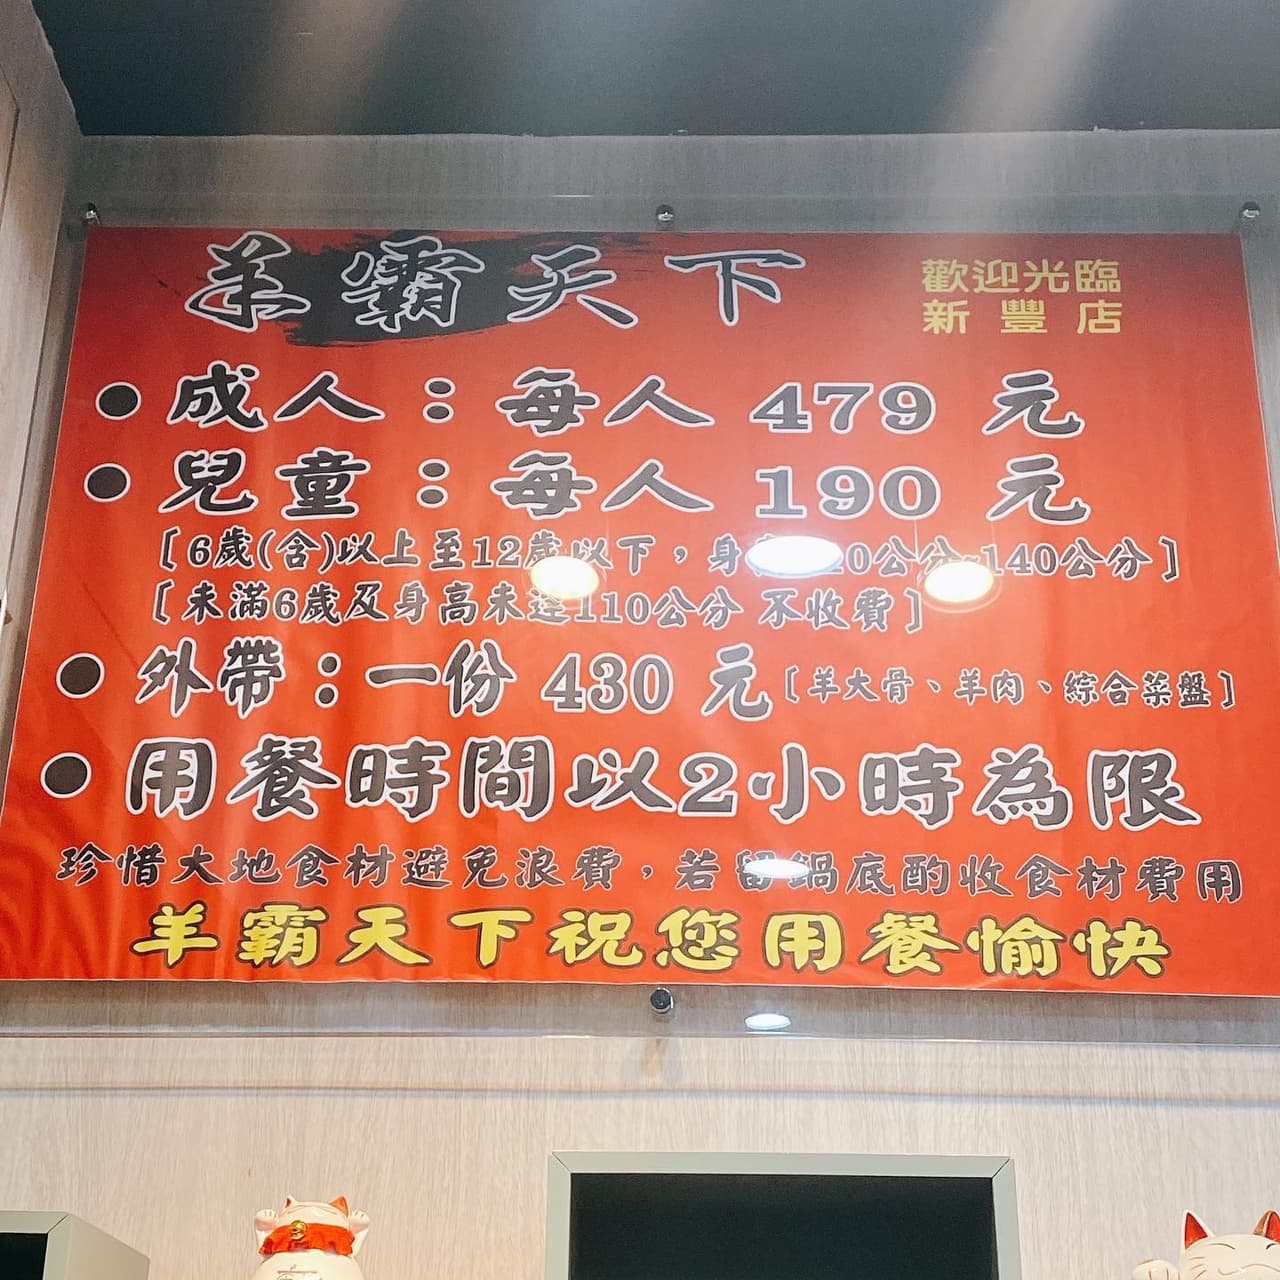 羊霸天下
歡迎光臨
新豐店
●成人：每人 479 元
●兒童：每人 190 元
[6歲(含)以上至12歲以下，身 20公分~140公分]
[未滿6歲及身高未達110公分 不收費]
●外帶：一份 430 元[羊大骨、羊肉、綜合菜盤]
●用餐時間以2小時為限
珍惜大地食材避免浪費，若留鍋底酌收食材費用
羊霸天下祝您用餐愉快